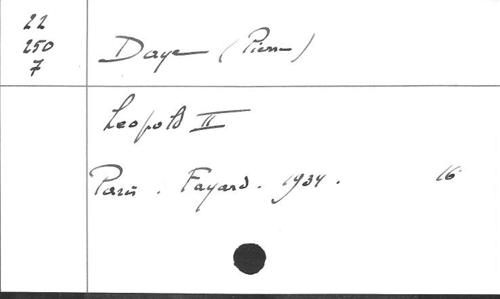 22
250
7
Daye (Pierre)
Leopold II
Paris. Fayard. 1934. 16